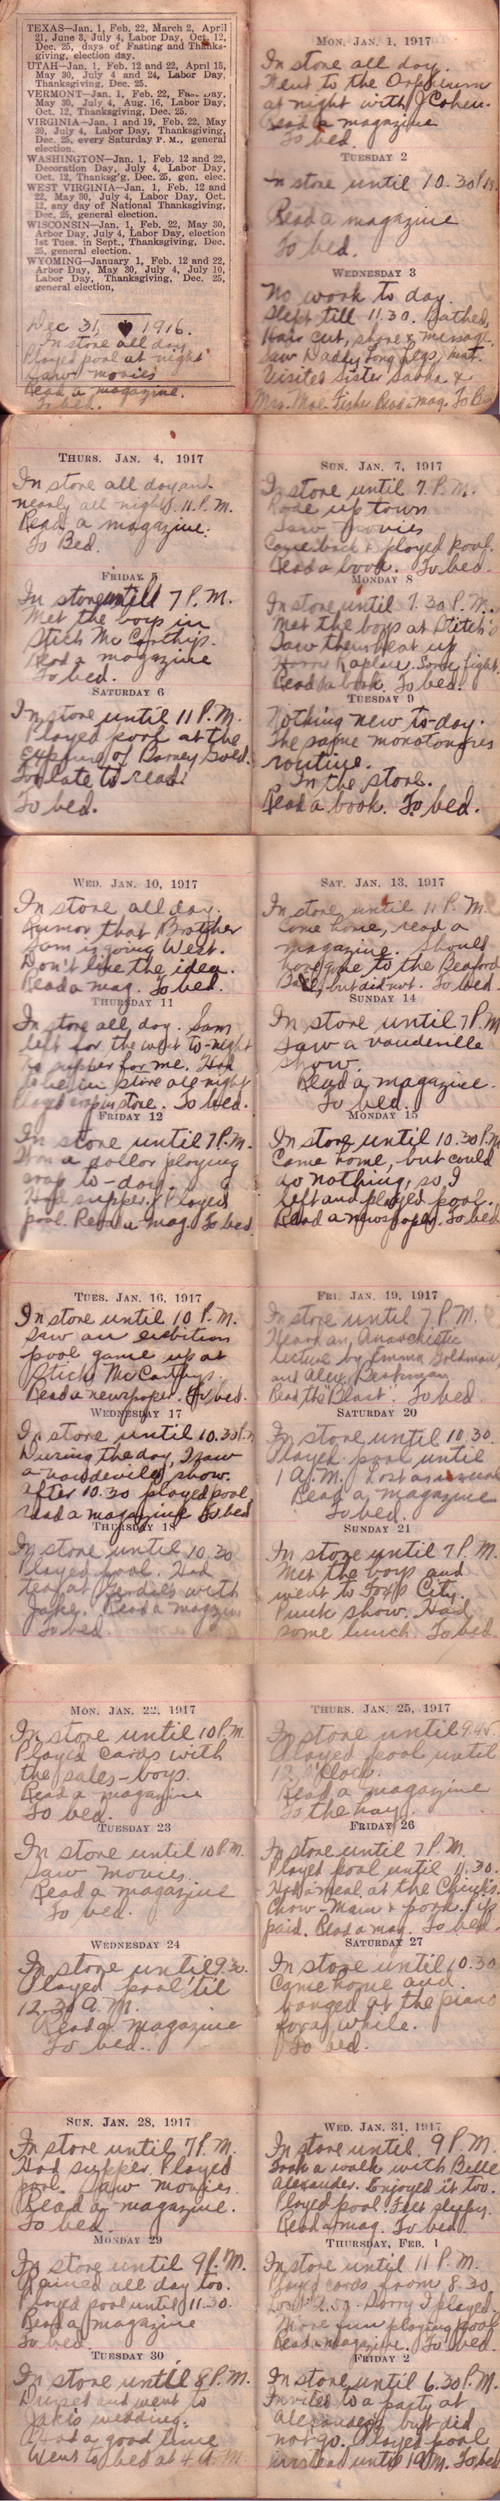 TEXAS—Jan. 1, Feb. 22, March 2, April
21, June 3, July 4, Labor Day, Oct. 12,
Dec. 25, days of Fasting and Thanks-
giving, election day.
UTAH—Jan. 1, Feb. 12 and 22, April 15,
May 30, July 4 and 24, Labor Day,
Thanksgiving, Dec. 25.
VERMONT—Jan. 1, Feb. 22, Fast Day,
May 30, July 4, Aug. 16, Labor Day,
Oct. 12, Thanksgiving, Dec. 25.
VIRGINIA—Jan. 1 and 19, Feb. 22, May
30, July 4, Labor Day, Thanksgiving,
Dec. 25, every Saturday P. M., general
election.
WASHINGTON—Jan. 1, Feb. 12 and 22,
Decoration Day, July 4, Labor Day,
Oct. 12, Thanksg'g, Dec. 25, gen. elec.
WEST VIRGINIA—Jan. 1, Feb. 12 and
22, May 30, July 4, Labor Day, Oct.
12, any day of National Thanksgiving,
Dec. 25, general election.
WISCONSIN—Jan. 1, Feb. 22, May 30,
Arbor Day, July 4, Labor Day, election
1st Tues. in Sept., Thanksgiving, Dec.
25, general election.
WYOMING—January 1, Feb. 12 and 22,
Arbor Day, May 30, July 4, July 10,
Labor Day, Thanksgiving, Dec. 25,
general election,
Dec 31, 1916.
In store all day
Played pool at night
Saw movies
Read a magazine.
To bed.
MON. JAN. 1, 1917
In store all day.
Went to the Orpheum
at night with J Cohen.
Read a magazine
To bed.
TUESDAY 2
In store until 10.30 P.M.
Read a magazine
To bed.
WEDNESDAY 3
No work to day.
Slept till 11.30. Bathed,
Hair cut, shave & message.
Saw Daddy Long Legs, mat.
Visited sister &
Mrs. Moe Fisher Read a mag. To Bed
THURS. JAN. 4, 1917
In store all day and
nearly all night. 11 P.M.
Read a magazine.
To Bed.
FRIDAY 5
In store until 7 P.M.
Met the boys in
Stich McCarthy's.
Read a magazine
To bed.
SATURDAY 6
In store until 11 P.M.
Played pool at the
expense of Barney Gold.
Too late to read.
To bed.
SUN. JAN. 7, 1917
In store until 7 P.M.
Rode up town
Saw movies
Came back & played pool.
Read a book. To bed.
MONDAY 8
In store until 7.30 P.M.
Met the boys at Stitch's
Saw them beat up
Harry Kaplan. Some fight.
Read a book. To bed.
TUESDAY 9
Nothing new to-day.
The same monotonous
routine.
In the store.
Read a book. To bed.
WED. JAN. 10, 1917
In store all day.
Rumor that Brother
Sam is going West.
Don't like the idea.
Read a mag. To bed.
THURSDAY 11
In store all day. Sam
left for the west to-night
No supper for me. Had
to be in store all night
Played crap in store. To bed.
FRIDAY 12
In store until 7 P.M.
Won a dollar playing
crap to-day.
Had supper. Played
pool. Read a mag. To bed.
SAT. JAN. 13, 1917
In store until 11 P.M.
Come home, read a
magazine. Should
have gone to the
Ball, but did not. To bed.
SUNDAY 14
In store until 7 P.M
Saw a vaudeville
show.
Read a magazine.
To bed.
MONDAY 15
In store until 10.30 P.M
Came home, but could
do nothing, so I
left and played pool.
Read a newspaper. To bed
TUES. JAN. 16, 1917
In store until 10 P.M.
Saw an exibition
pool game up at
Stich McCarthys.
Read a newspaper. To bed.
WEDNESDAY 17
In store until 10.30 P.M
During the day, I saw
a vaudeville show.
After 10.30 played pool,
read a magazine To bed
THURSDAY 18
In store until 10.30
Played pool. Had
tea at with
Jake. Read a magazine
To bed
FRI. JAN. 19, 1917
In store until 7 P.M.
Heard an Anarchistic
lecture by Emma Goldman,
and Alex. Berkman
Read the "Blast". To bed.
SATURDAY 20
In store until 10.30
Played pool until
1 A.M. Lost as usual
Read a magazine
To bed.
SUNDAY 21
In store until 7 P.M.
Met the boys and
went to Fox's City.
Punk show. Had
some lunch. To bed.
MON. JAN. 22, 1917
In store until 10 P.M.
Played cards with
the sales-boys.
Read a magazine
To bed.
TUESDAY 23
In store until 10 P.M.
Saw movies.
Read a magazine
To bed.
WEDNESDAY 24
In store until 9.30.
Played pool 'til
12.30 A.M.
Read a magazine
To bed.
THURS. JAN. 25, 1917
In store until 9.45.
Played pool until
12 o'clock.
Read a magazine
To the hay.
FRIDAY 26
In store until 7 P.M.
Played pool until 11.30.
Had a meal at the Chink's
Chow-Main & pork.
paid. Read a mag. To bed.
SATURDAY 27
In store until 10.30
Came home and
banged at the piano
for a while.
To bed.
SUN. JAN. 28, 1917
In store until 7 P.M.
Had supper. Played
pool. Saw movies
Read a magazine.
To bed.
MONDAY 29
In store until 9 P.M.
Rained all day too.
Played pool until 11.30.
Read a magazine
To bed.
TUESDAY 30
In store until 8 P.M.
Dressed and went to
Jakes wedding.
Had a good time
Went to bed at 4 A.M.
WED. JAN. 31, 1917
In store until 9 P.M.
Took a walk with Belle
Alexander. Enjoyed it too.
Played pool. Felt sleepy.
Read a mag. To bed.
THURSDAY, FEB. 1
In store until 11 P.M.
Played cards from 8.30
Lost Sorry I played.
More fun playing pool
Read a magazine. To bed.
FRIDAY 2
In store until 6.30 P.M.
Invited to a party at
Alexanders but did
not go. Played pool
instead until M. To bed